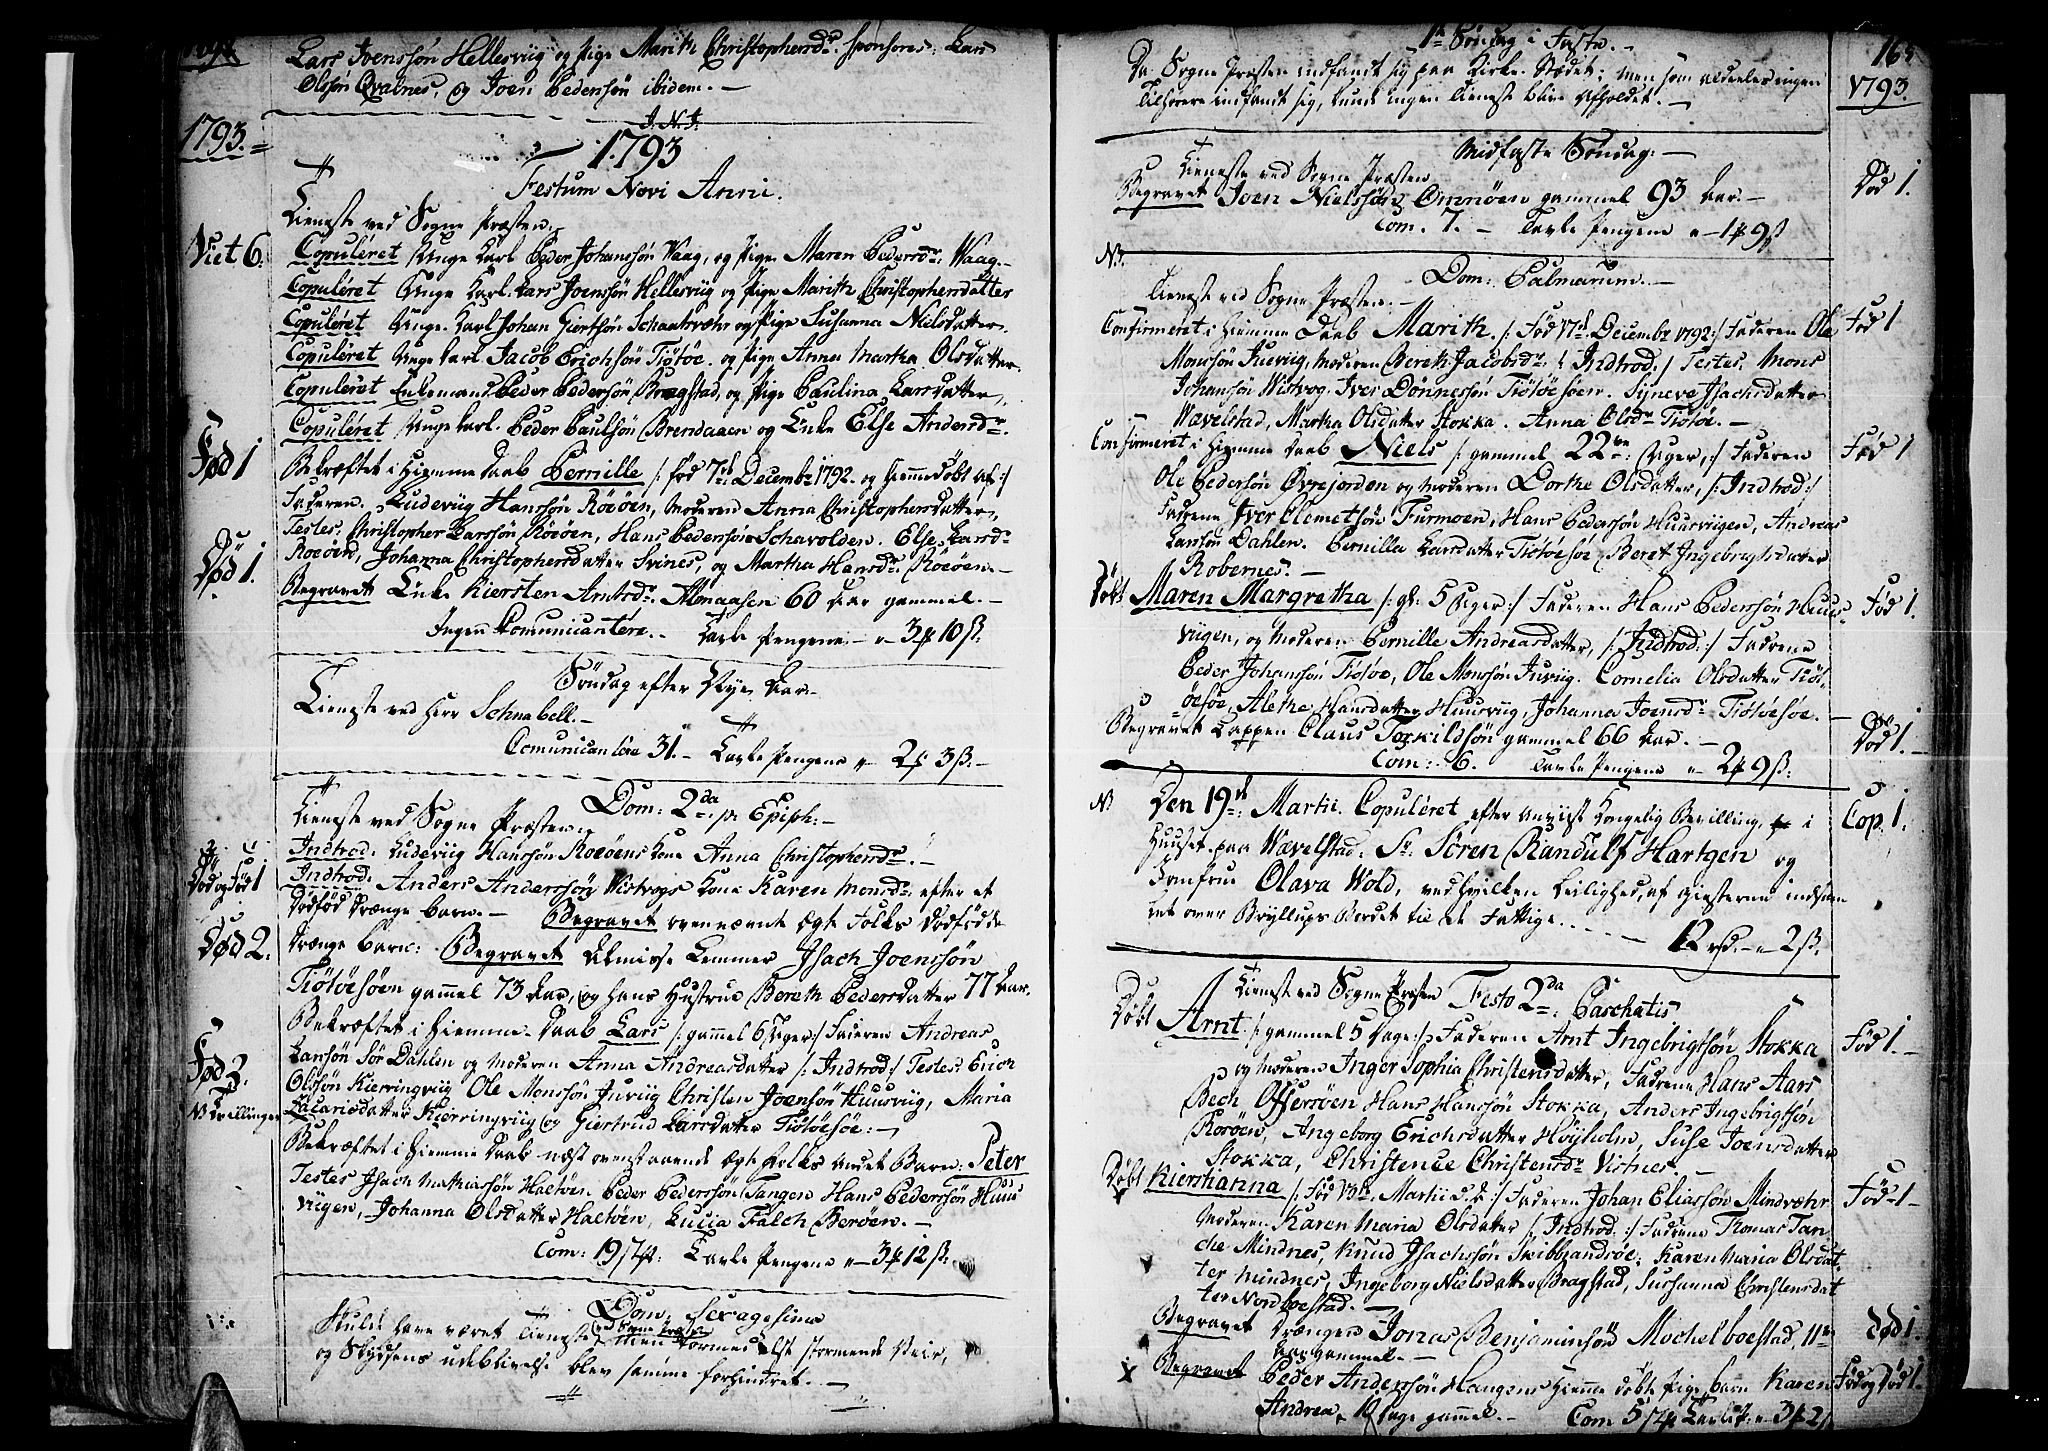 Lars Joenssön Hellesviig og Pige Marith Christophersdr. sponsores: Lars
Olssön Qvalnes, og Joen Pedersön ibidem.
1793.
J. N. J.
1793
Festum Novi Anni.
Tieneste ved Sogne Præsten.
Viet 6.
Copuléret Unge Karl Peder Johanssön Waag, og Pige Maren Pedersdr. Waag.
Copuléret Unge Karl Lars Joenssön Hellesviig og Pige Marith Christophersdatter
Copuléret Unge Karl Johan Giertsön Schaatvæhr og Pige Susanna Nielsdatter.
Copuléret Unge Karl Jacob Erichsön Tiötöe, og Pige Anna Martha Olsdatter.
Copuléret Enkemand Peder Pedersön Bragstad, og Pige Paulina Larsdatter.
Copuléret Unge Karl Peder Paulsön Brendaasen og Enke Else Andersdr.
Fød 1
Bekræftet i Hiemme Daab Pernille /: fød 7de Decembr 1792. og hiemmedøbt af :/
Faderen Ludeviig Hanssön Röeöen, Moderen Anna Christophersdatter,
Testes, Christopher Larssön Röeöen, Hans Pedersön Schavolden. Else Larsdr.
Röeöen, Johanna Christophersdatter Svines, og Martha Hansdr. Röeöen.
Død 1.
Begravet Enke Kiersten Arntsdr. Almaasen 60 Aar gammel.
Ingen Comunicantere. Tavle Pengene 3 10 ß.
Söndag efter Nye Aar.
Tieneste ved Herr Schnabell.
Comunicantere 31. Tavle Pengene 2 3 ß.
Dom: 2da p: Epiph:
Tieneste ved Sogne Præsten.
Indtrod. Ludeviig Hanssön Röeöens Kone Anna Christophersdr.
Død og Fød 1
Indtrod. Anders Anderssön Vistvogs Kone Karen Monsdr. efter et
Dødfød Drænge Barn. Begravet ovennævnte Egte Folks Dødfødde
Død 2.
Drænge Barn: Begravet Almisse Lemmer Jsach Joenssön
Tiötöesöen gammel 73 Aar, og hans Hustrue Bereth Pedersdatter 77 Aar.
Bekræftet i Hiemme Daab Lars /: gammel 6 Uger :/ Faderen Andreas
Fød 2.
Larsön Sör Dahlen og Moderen Anna Andreasdatter /: Indtrod :/ Testes Erich
Olssön Kierringviig Ole Monssön Juviig Christen Joensön Huusviig, Maria
NB Tvillinger
Zacariæ datter Kierringviig og Giertrud Larsdatter Tiötöesöe:
Bekræftet i Hiemme Daab næst ovenstaaende Egte Folks andet Barn: Peter
Testes Jsach Mathiassön Haltöen Peder Pederssön Tangen Hans Pederssön Huus
viigen, Johanna Olsdatter Haltöen, Lucia Falch Beröen.
Com: 19 Tavle Pengene 3 12 ß.
Dom: Sexagesima
Skulde have været Tieneste ved Sogne Præsten men formedelst stormende Veir,
og Skydsens udeblivelse blev samme forhindret.
1te Söndag i Faste.
165
1793.
Da Sogne Præsten indfandt sig paa Kirke-Stædet; men som aldeeles ingen
Tilhörere indfandt sig, kunde ingen Tieneste blive afholdet.
Midfaste Söndag:
Tieneste ved Sogne Præsten
Begravet Joen Nielssön Omnöen gammel 93 Aar.
Død 1.
Com. 7. Tavle Pengene 1 9 ß
Dom: Palmarum.
Tieneste ved Sogne Præsten.
Confirmeret i Hiemme Daab Marith. /: Fød 17de Decembr 1792 :/ Faderen Ole
Fød 1
Monssön Juviig, Moderen Bereth Jacobsdr. /: Indtrod :/ Testes Mons
Johansön Wistvog. Iver Dönnessön Tiötöesöen. Synneve Jsachsdatter
Wævelstad, Martha Olsdatter Stokka. Anna Olsdr. Tiötöe.
Confirmeret i Hiemme Daab Niels /: gammel 22 Uger, :/ Faderen
Fød 1
Ole Pedersön Övrejorden og Moderen Dorthe Olsdatter, /: Indtrod :/
Fadrene Iver Clemetsön Furmoen, Hans Pederssön Huusviigen, Andreas
Larsön Dahlen. Pernilla Larsdatter Tiötöesöe Beret Ingebrigtsdatter
Robernes.
Døbt Maren Margretha /: gl: 5 Uger :/ Faderen Hans Pederssön Huus-
Fød 1.
viigen, og Moderen Pernille Andreasdatter, /: Indtrod :/ Fadrene
Peder Johanssön Tiötöe, Ole Monssön Juviig. Cornelia Olsdatter Tiöt-
öesöe, Alethe Hansdatter Huusviig, Johanna Joensdr. Tiötöesöe.
Begravet Lappen Claus Torkildsön gammel 66 Aar.
Død 1.
Com: 6. Tavle Pengene 2 9 ß.
Den 19de Martii. Copuléret efter anviist Kongelig Bevilling, i
Cop. 1.
Huuset paa Wævelstad: Sr. Sören Randulf Hartgen og
Jomfrue Olava Wold, ved hvilken Leilighed af Giesterne indsam
let over Bryllups Bordet til de Fattige
12 rd. 2 ß.
Tieneste ved Sogne Præsten Festo 2da Paschatis
Døbt Arnt /: gammel 5 Dage :/ Faderen Arnt Ingebrigtsön Stokka
Fød 1.
og Moderen Inger Sophia Christensdatter, Fadrene Hans Aars
Bech Offersöen Hans Hanssön Stokka, Anders Ingebrigtsön
Roröen, Ingeborg Erichsdatter Höyholm, Suse Joensdatter
Stokka, Christence Christensdr. Vistnes.
Døbt Kiershanna /: Fød Martii d. A. :/ Faderen Johan Eliassön Mindvæhr
Fød 1
Moderen Karen Maria Olsdatter /: Indtrod :/ Fadrene Thomas Tan-
che Mindnes, Knud Jsachssön Skibbaadsöe. Karen Maria Olsdat-
ter Mindnes, Ingeborg Nielsdatter Bragstad, Susanna Christensdat
ter Nordboestad.
Begravet Drængen Jonas Benjaminsön Mochelboestad, 11
Død 1.
Aar gammel.
Begravet Peder Anderssön Haugens hiemme døbte Pige barn Karen
Fød og Død 1.
Andrea, 10 Dage gammel. Com 5 Tavlep: 3 2